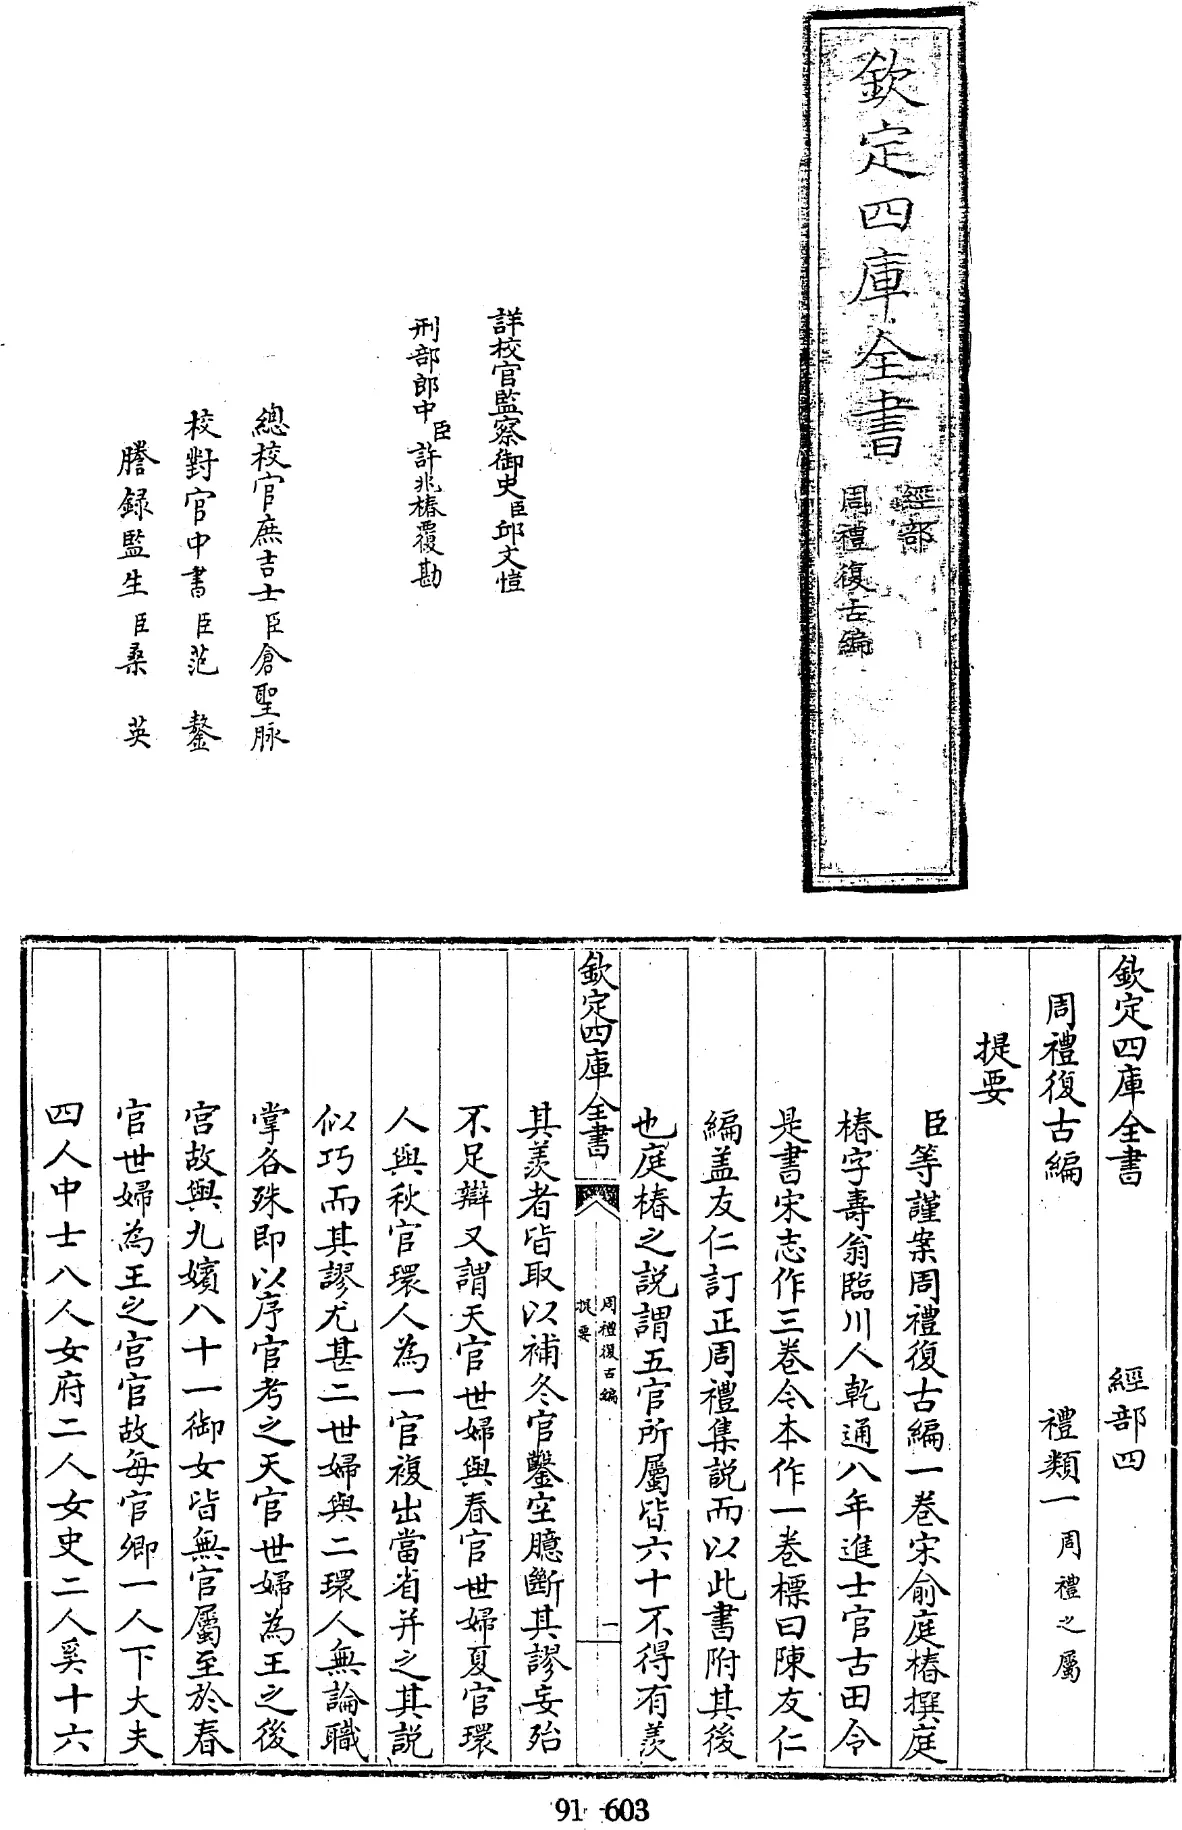 欽定四庫全書
經部
周禮復古編
詳校官監察御史臣邱文愷
刑部郎中臣許兆椿覆勘
總校官庶吉士臣倉聖脉
校對官中書臣范鏊
謄録監生臣桑英
欽定四庫全書 經部四
周禮復古編 禮類一周禮之屬
提要
臣等謹案周禮復古編一卷宋俞庭椿撰庭
椿字壽翁臨川人乾通八年進士官古田令
是書宋志作三卷今本作一卷標曰陳友仁
編盖友仁訂正周禮集説而以此書附其後
也庭椿之説謂五官所屬皆六十不得有羨
欽定四庫全書
周禮復古編
提要
一
其羨者皆取以補冬官鑿空臆斷其謬妄殆
不足辯又謂天官世婦與春官世婦夏官環
人與秋官環人為一官複出當省并之其説
似巧而其謬尤甚二世婦與二環人無論職
掌各殊即以序官考之天官世婦為王之後
宫故與九嬪八十一御女皆無官屬至於春
官世婦為王之宫官故每官卿一人下大夫
四人中士八人女府二人女史二人奚十六
91-603